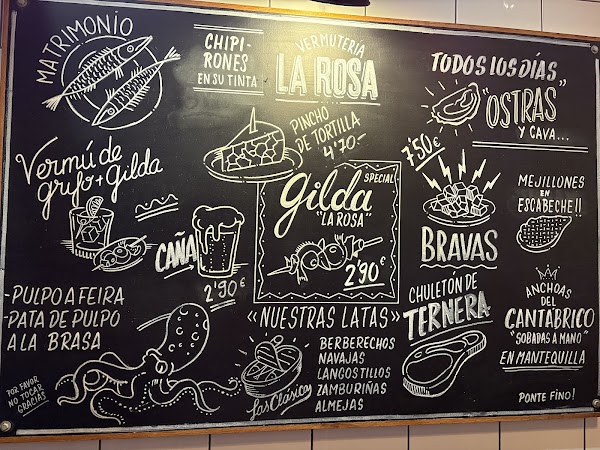 MATRIMONIO
CHIPI-
RONES
EN SU TINTA
VERMUTERIA
LA ROSA
TODOS LOS DÍAS
"OSTRAS"
Y CAVA...
Vermú de
grifo + Gilda
PINCHO
DE TORTILLA
4'70.-
SPECIAL
Gilda
"LA ROSA"
2'90€
7'50€
BRAVAS
MEJILLONES
EN
ESCABECHE!!
CAÑA
2'90€
-PULPO A FEIRA
-PATA DE PULPO
A LA BRASA
«NUESTRAS LATAS»
BERBERECHOS
NAVAJAS
LANGOSTILLOS
ZAMBURIÑAS
ALMEJAS
Las Clásicas
CHULETÓN DE
TERNERA
ANCHOAS
DEL
CANTÁBRICO
"SOBADAS A MANO"
EN MANTEQUILLA
POR FAVOR
NO TOCAR
GRACIAS
PONTE FINO!